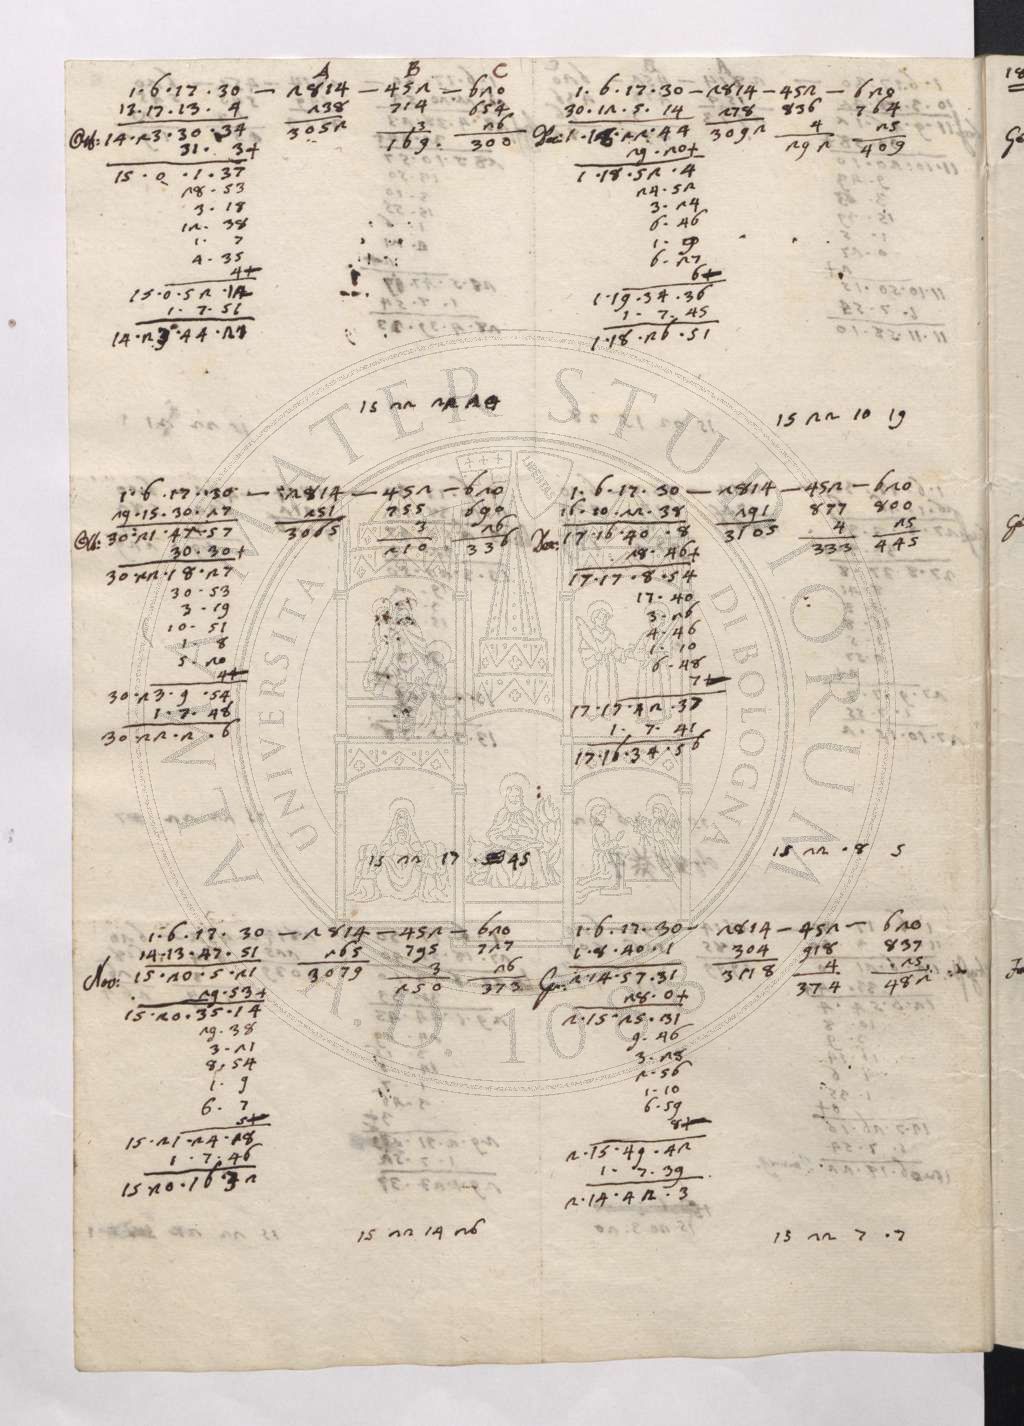 A B C
1.6.17.30 — 2814 — 452 — 620
13.17.13.4 238 714 654
14.23.30.34 3052 3 26
31. 3+ 169. 300
15.0.1.37
28.53
3.18
12.38
1.7
4.35
4+
15.0.52.12
1.7.51
14.23.44.21
15 22 22 24
1.6.17.30 — 2814 — 452 — 620
30.12.5.14 278 836 764
1.18.22.44 3092 4 25
29.20+ 292 409
1.18.52.4
24.52
3.24
6.46
1.9
6.27
6+
1.19.34.36
1.7.45
1.18.26.51
15 22 10 19
1.6.17.30 — 2814 — 452 — 620
29.15.30.27 251 755 690
30.21.47.57 3065 3 26
30.30+ 210 336
30.22.18.27
30.53
3.19
10.51
1.8
5.20
4+
30.23.9.54
1.7.48
30.22.2.6
15 22 17.45
1.6.17.30 — 2814 — 452 — 620
16.10.22.38 291 877 800
17.16.40.8 3105 4 25
28.46+ 333 445
17.17.8.54
17.40
3.26
4.46
1.10
6.48
7+
17.17.42.37
1.7.41
17.16.34.56
15 22 .8 5
1.6.17.30 — 2814 — 452 — 620
14.13.47.51 265 795 727
Nov: 15.20.5.21 3079 3 26
29.53+ 250 373
15.20.35.14
29.38
3.21
8.54
1.9
6.7
5+
15.21.24.28
1.7.46
15.20.16.32
15 22 14 26
1.6.17.30 — 2814 — 452 — 620
1.8.40.1 304 918 837
2.14.57.31 3118 4 25
28.0+ 374 482
2.15.25.31
9.46
3.28
2.56
1.10
6.59
8+
2.15.49.42
1.7.39
2.14.42.3
15 22 7.7
18
ALMA MATER STUDIORUM
UNIVERSITA DI BOLOGNA
A.D. 1088